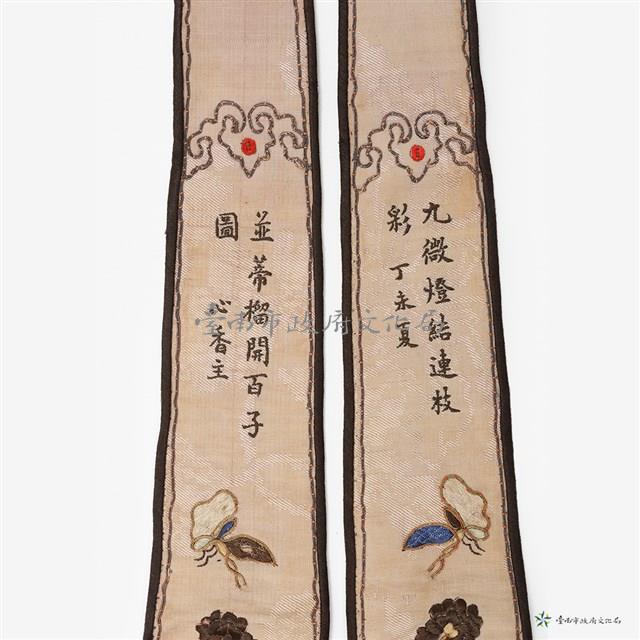 九微燈結連枝
彩
丁未夏
並蒂榴開百子
圖
心香主
臺南市政府文化局
臺南市政府文化局